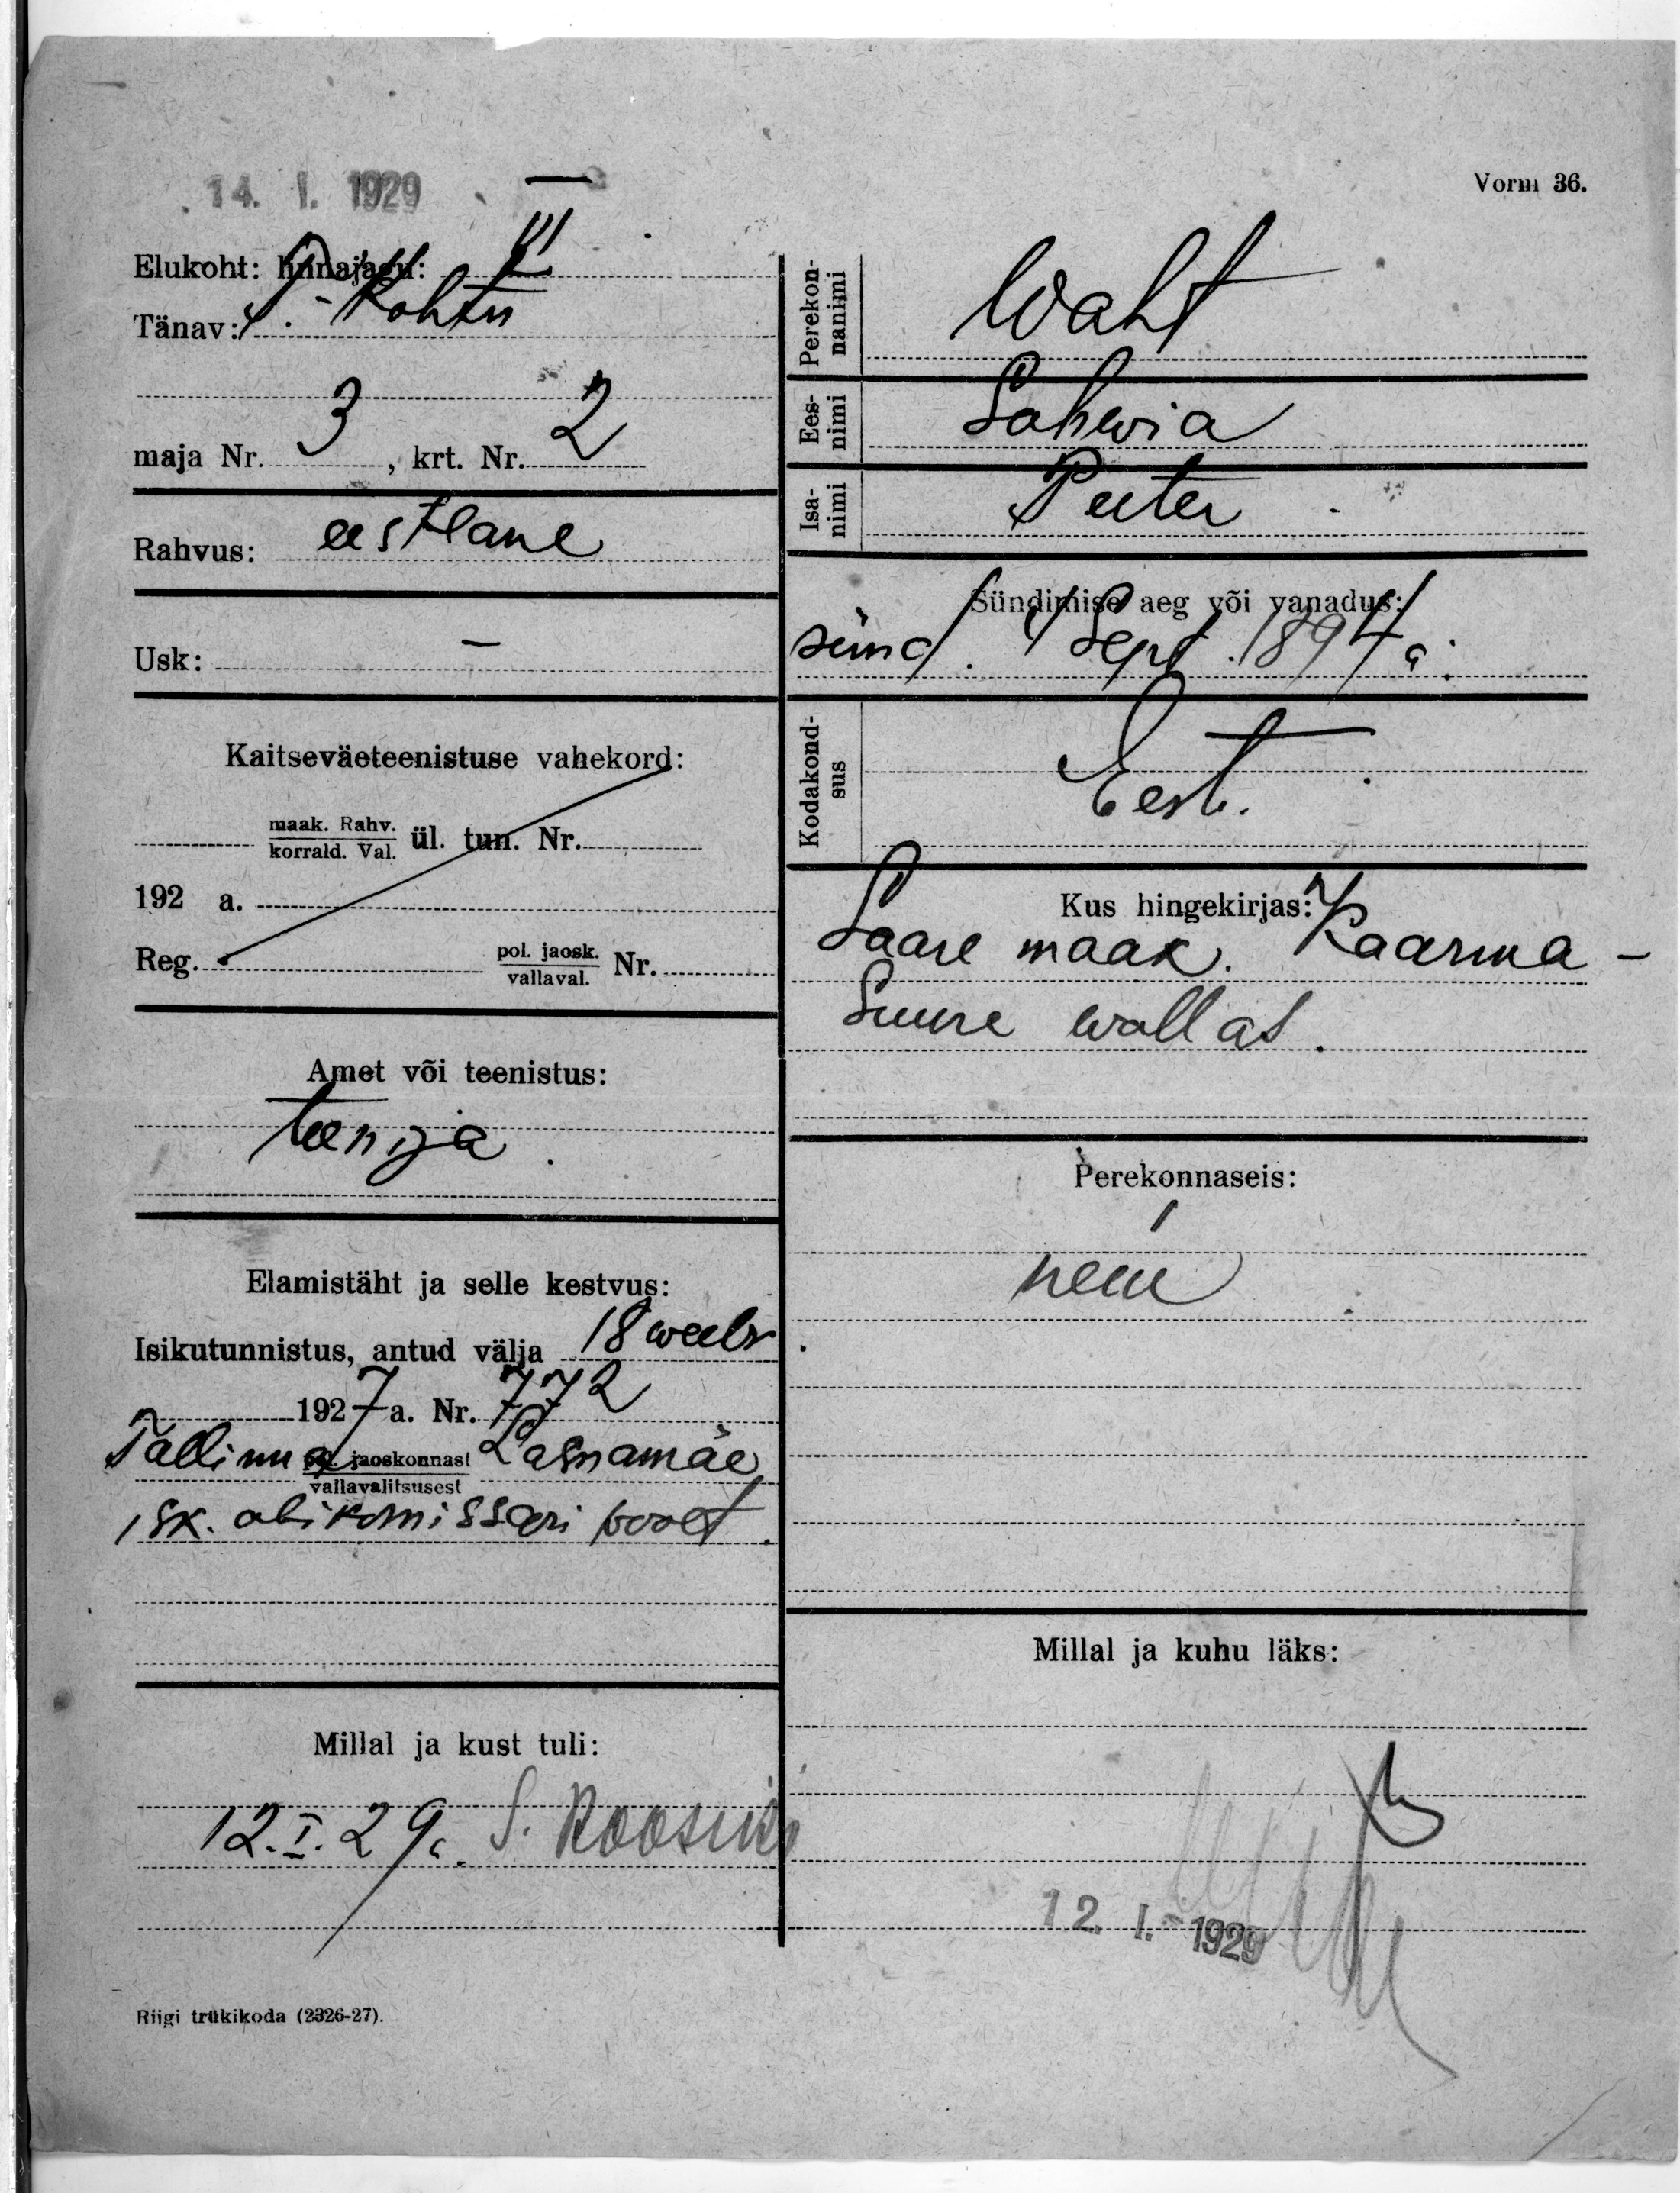 14. I. 1929
Vorm 36.
Elukoht: linnajagu: VI
Tänav: P.-Kohtu
maja Nr. 3, krt. Nr. 2
Rahvus: eestlane
Usk: —
Kaitseväeteenistuse vahekord:
maak. Rahv.
korrald. Val. ül. tun. Nr.
192 a.
Reg. pol. jaosk.
vallaval. Nr.
Amet või teenistus:
teenija.
Elamistäht ja selle kestvus:
Isikutunnistus, antud välja 18 weebr
1927 a. Nr. 772
Tallinna pol. jaoskonnast Lasnamäe
vallavalitsusest
jsk. abikomissari poolt.
Millal ja kust tuli:
12.I.29a. S. Roosik
Riigi trükikoda (2326-27).
Perekonnanimi
Waht
Eesnimi
Sohwia
Isanimi
Peeter
Sündimise aeg või vanadus:
sünd. 1 Sept. 1894 a.
Kodakondsus
Eest.
Kus hingekirjas:
Saare maak. Kaarma-
Suure wallas.
Perekonnaseis:
neiu
Millal ja kuhu läks:
12. I. 1929